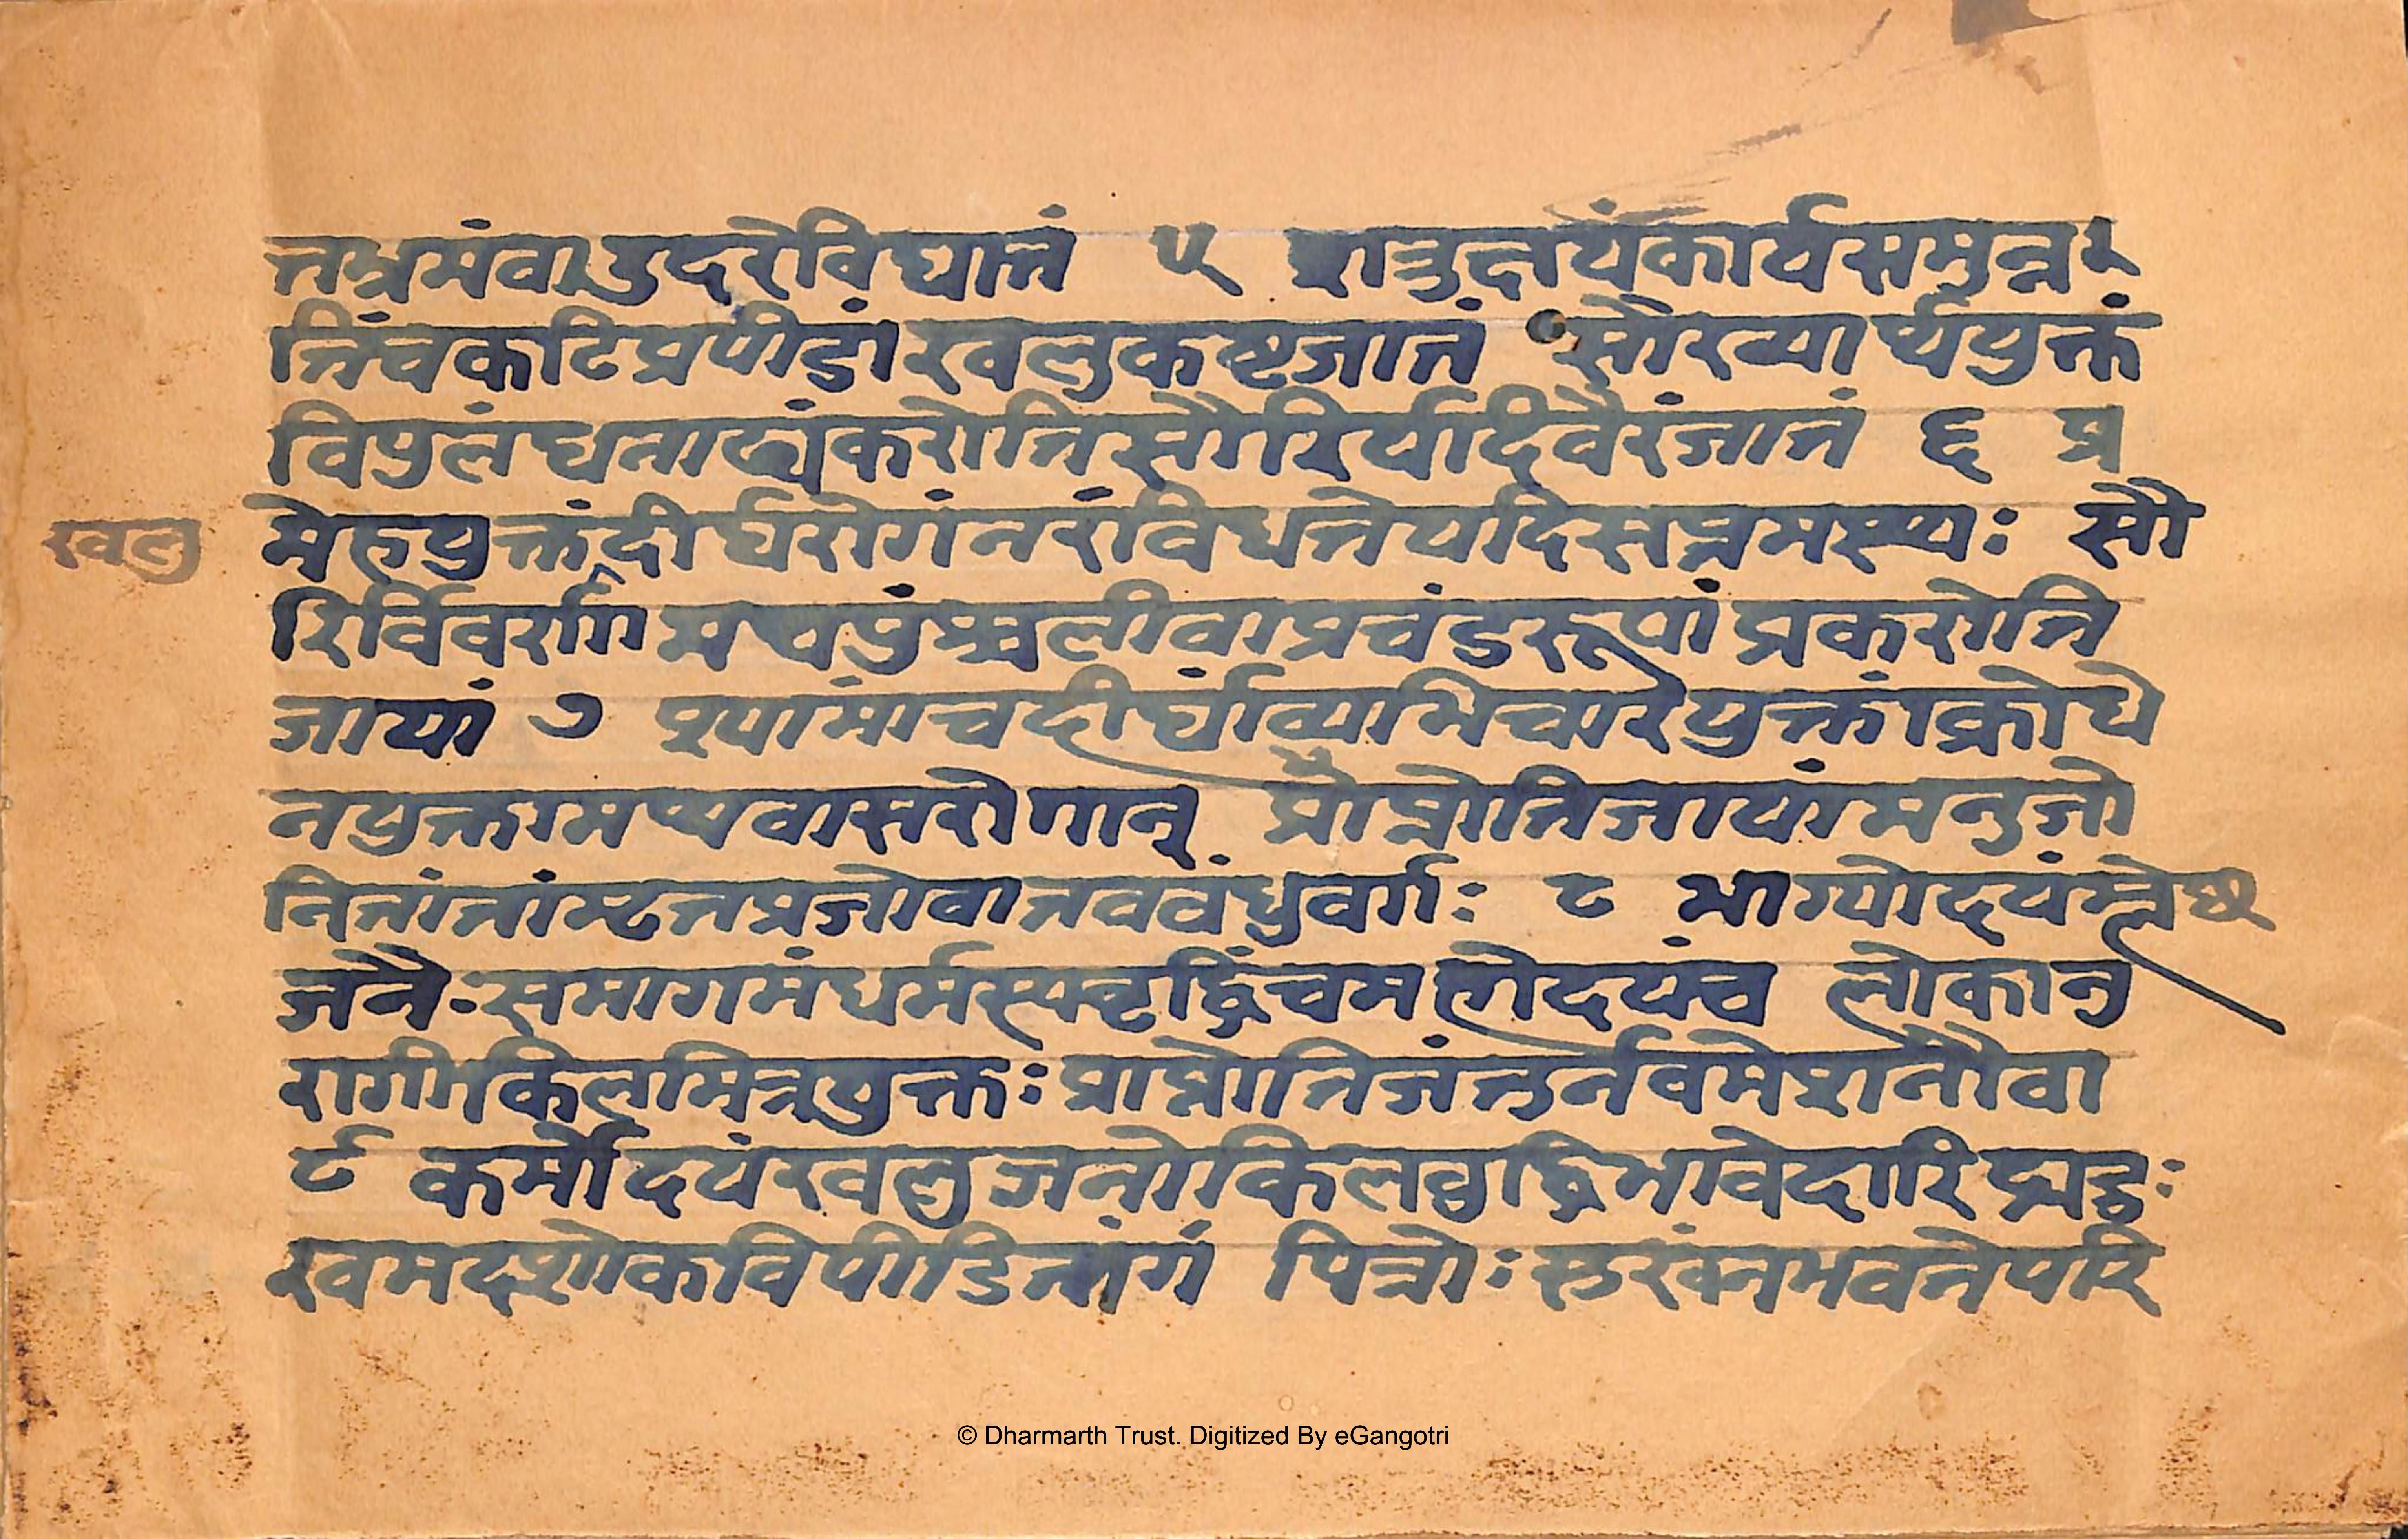 तभ्रमंवाउदरेविघातं ५ शत्रुक्षयंकार्यसमुन्न
तिंचकटिप्रपीडांखलुकष्टजातं सौख्यार्थयुक्तं
विपुलंधनाढ्यंकरोतिसौरिर्यदिवैरंजातं ६ प्र
मेहयुक्तंदीर्घरोगंनरंविधत्तेयदिसप्तमस्थः सौ
खलु
रिर्विवर्णामथपुंश्चलींवाप्रचंडरूपांप्रकरोति
जायां ७ श्यामांचदीर्घांव्याभिचारेयुक्तांक्रोधे
नयुक्तामथवासरोगान् प्राप्नोतिजायांमनुजो
नितांतांम्टतप्रजोवानवबंधुवर्गः ८ भाग्योदयंम्लेछ
जनैःसमागमंधर्मस्यवृद्धिंचमहोदयंच लोकानु
रागीकिलमित्रयुक्तःप्राप्नोतिजंतुर्नवमेशनौवा
९ कर्मोदयंखलुजनोकिलवृद्धिभावेदारिद्र्यदुः
खमदशोकविपीडितांगं पित्रोःसुखंनभवतेपरि
© Dharmarth Trust. Digitized By eGangotri